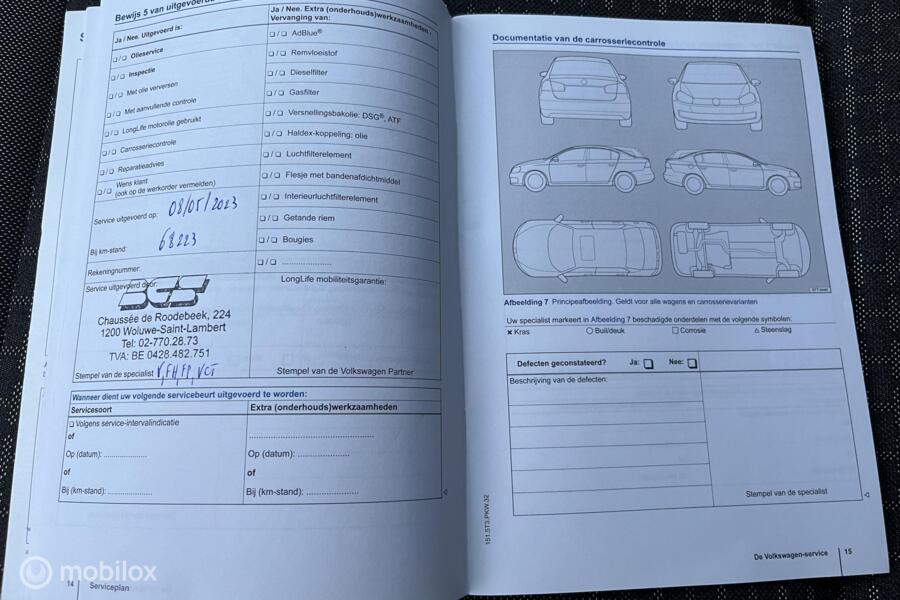 Bewijs 5 van uitgevoerde
Ja / Nee. Uitgevoerd is:
❑ / ❑ Olieservice
❑ / ❑ Inspectie
❑ / ❑ Met olie verversen
❑ / ❑ Met aanvullende controle
❑ / ❑ LongLife motorolie gebruikt
❑ / ❑ Carrosseriecontrole
❑ / ❑ Reparatieadvies
❑ / ❑ Wens klant
(ook op de werkorder vermelden)
Service uitgevoerd op: 08/05/2023
Bij km-stand: 68223
Rekeningnummer:
Service uitgevoerd door:
BCS
Chaussée de Roodebeek, 224
1200 Woluwe-Saint-Lambert
Tel: 02-770.28.73
TVA: BE 0428.482.751
Stempel van de specialist V,FH,FP,VCT
Ja / Nee. Extra (onderhouds)werkzaamheden :
Vervanging van:
❑ / ❑ AdBlue®
❑ / ❑ Remvloeistof
❑ / ❑ Dieselfilter
❑ / ❑ Gasfilter
❑ / ❑ Versnellingsbakolie: DSG®, ATF
❑ / ❑ Haldex-koppeling: olie
❑ / ❑ Luchtfilterelement
❑ / ❑ Flesje met bandenafdichtmiddel
❑ / ❑ Interieurluchtfilterelement
❑ / ❑ Getande riem
❑ / ❑ Bougies
❑ / ❑ .....................
LongLife mobiliteitsgarantie:
Stempel van de Volkswagen Partner
Wanneer dient uw volgende servicebeurt uitgevoerd te worden:
Servicesoort
❑ Volgens service-intervalindicatie
of
Op (datum): .....................
of
Bij (km-stand): .....................
Extra (onderhouds)werkzaamheden
..........................................
Op (datum): .....................
of
Bij (km-stand): .....................
14 Serviceplan
mobilox
Documentatie van de carrosseriecontrole
Afbeelding 7 Principeafbeelding. Geldt voor alle wagens en carrosserievarianten
Uw specialist markeert in Afbeelding 7 beschadigde onderdelen met de volgende symbolen:
✖ Kras ○ Buil/deuk □ Corrosie △ Steenslag
Defecten geconstateerd? Ja: ❑ Nee: ❑
Beschrijving van de defecten:
Stempel van de specialist
151.5T3.PKW.32
De Volkswagen-service 15